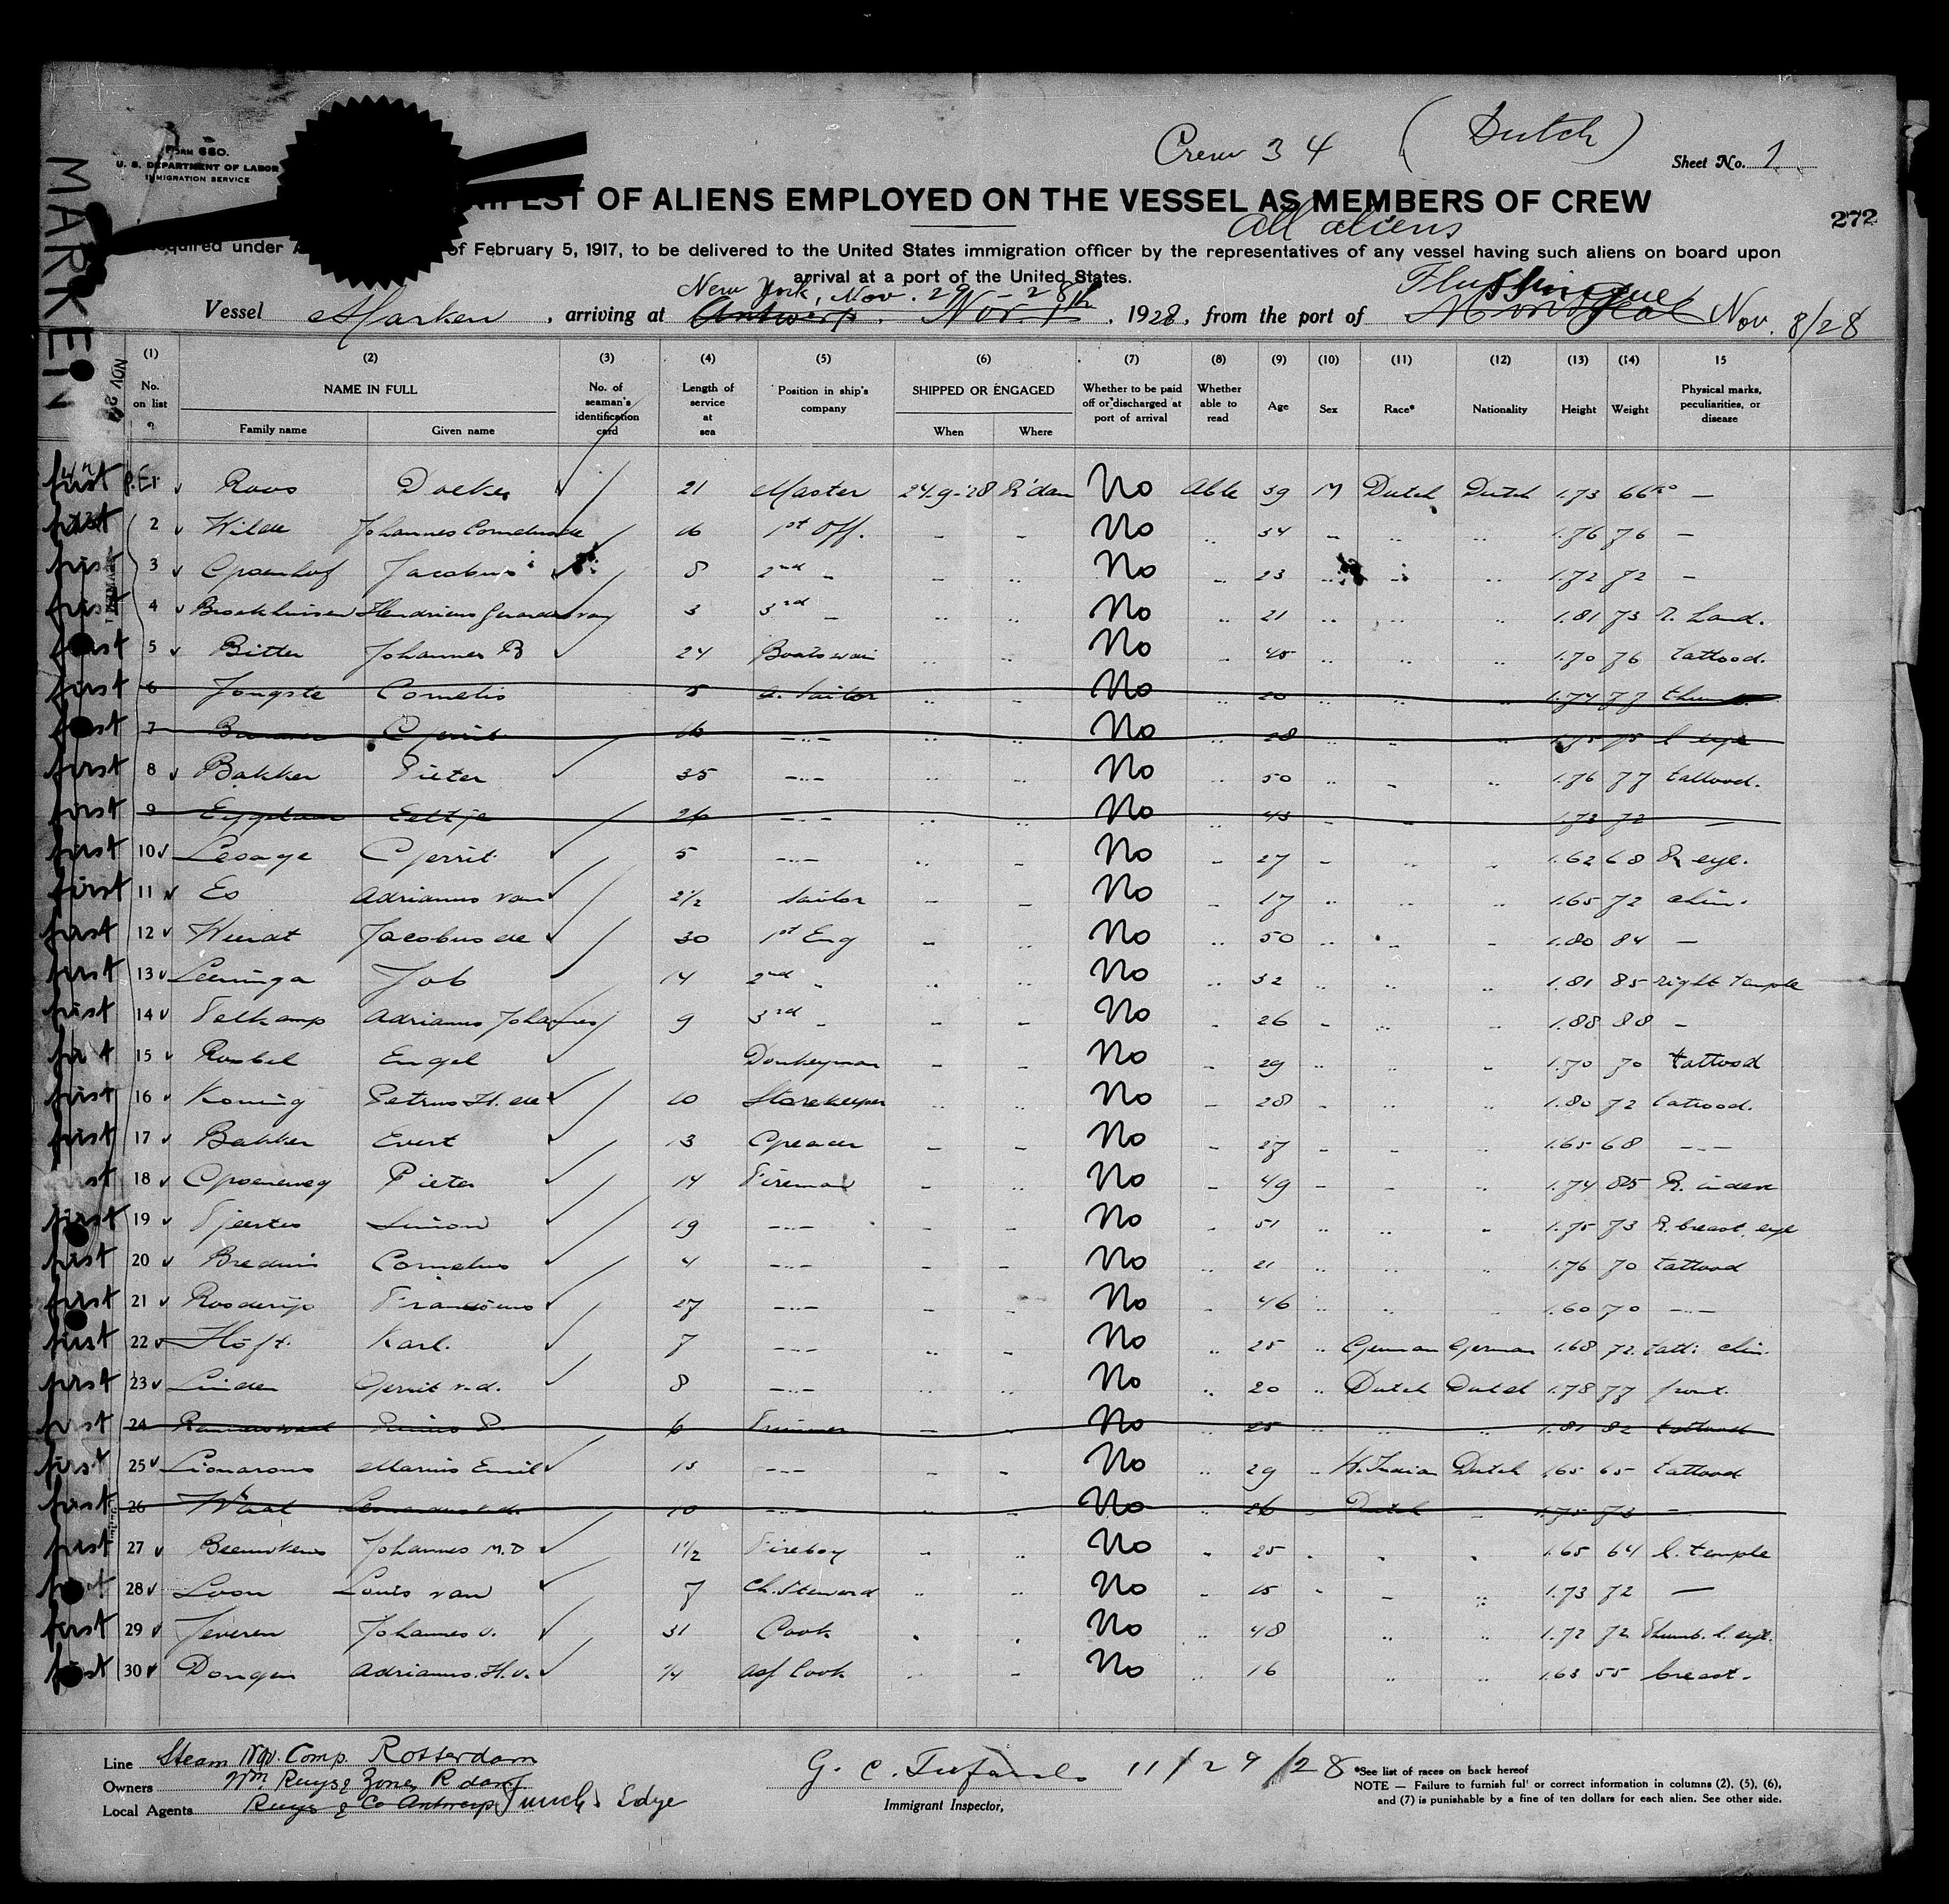 Crew 34 (Dutch)
FORM 680.
U. S. DEPARTMENT OF LABOR
IMMIGRATION SERVICE
Sheet No. 1
MARKEN
OF ALIENS EMPLOYED ON THE VESSEL AS MEMBERS OF CREW
All aliens
272
equired under of February 5, 1917, to be delivered to the United States immigration officer by the representatives of any vessel having such aliens on board upon
arrival at a port of the United States.
New York, Nov. 29 - 28 Flushing
Vessel Marken, arriving at Antwerp. Nov. 1928, from the port of Montreal Nov. 8/28
(1) (2) (3) (4) (5) (6) (7) (8) (9) (10) (11) (12) (13) (14) 15
No. on list NAME IN FULL No. of seaman's identification card Length of service at sea Position in ship's company SHIPPED OR ENGAGED Whether to be paid off or discharged at port of arrival Whether able to read Age Sex Race* Nationality Height Weight Physical marks, peculiarities, or disease
Family name Given name When Where
first 1 Roos 21 Master 24-9-'28 R'dam No Able 39 M Dutch Dutch 1.73 66 ko —
2 Wilde Johannes Cornelis de 16 1st Off. No 34 1.76 76 —
3 Groenhof Jacobus 8 2nd No 23 1.72 72 —
4 Broekhuisen Hendricus Gerardus van 3 3rd No 21 1.81 73 r. hand.
5 Bitter Johannes B 24 Boatswain No 45 1.70 76 tattood.
first 6 Jongste Cornelis 5 a. Sailor No 20 1.74 77 thumb
7 Gerrit 16 No 28 1.75 75 l eye
first 8 Bakker Pieter 35 No 50 1.76 77 tattood.
first 9 Eeltje 26 No 43 1.73 72 —
first 10 Lesage Gerrit 5 No 27 1.62 68 R eye.
first 11 Es Adrianus van 2½ Sailor No 17 1.65 72 chin.
first 12 Weerdt Jacobus de 30 1st Eng No 50 1.80 84 —
first 13 Leeninga Job 14 2nd No 32 1.81 85 right temple
first 14 Velkamp Adrianus Johannes 9 3rd No 26 1.88 88 —
15 Rosbel Engel Donkeyman No 29 1.70 70 tattood
first 16 Koning Petrus H. de 10 Storekeeper No 28 1.80 72 tatood.
first 17 Bakker Evert 13 Greaser No 27 1.65 68
18 Groeneweg Pieter 14 Fireman No 49 1.74 85 R. index
first 19 Tjeertes Simon 19 No 51 1.75 73 R. breast, eye
first 20 Bredius Cornelius 4 No 21 1.76 70 tattood
first 21 Rooderijs 27 No 46 1.60 70
first 22 Höft. Karl. 7 No 25 German German 1.68 72 tatt: chin.
first 23 Linden Gerrit v.d. 8 No 20 Dutch Dutch 1.78 77 front.
first 24 6 Trimmer No 25 1.81 82 tattood
first 25 Lionarons Marius Emil 13 No 29 W. Indian Dutch 1.65 65 tattood
first 26 Waal Leonardus de 10 No 26 Dutch 1.75 73 —
first 27 Johannes M.D 1½ Fireboy No 25 1.65 64 l. temple
28 Loon Louis van 7 Ch. Steward No 1.73 72 —
first 29 Jeveren Johannes v. 31 Cook No 48 1.72 72 Thumb. l. eye.
30 Dongen Adrianus. H. v. ¾ Ass Cook No 16 1.63 55 breast.
Line Steam Nav. Comp. Rotterdam
Owners Wm Ruys & Zonen R'dam
Local Agents Ruys & Co Antwerp Funch, Edye
G. C. 11/29/28
Immigrant Inspector,
*See list of races on back hereof
NOTE — Failure to furnish full or correct information in columns (2), (5), (6),
and (7) is punishable by a fine of ten dollars for each alien. See other side.